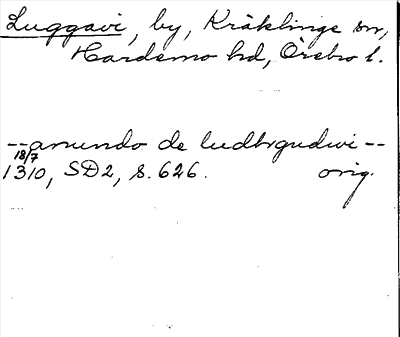 Luggavi, by, Kräklinge sn,
Hardemo hd, Örebro l.
--amundo de ludhgudwi--
18/7
1310, SD2, s. 626. orig.